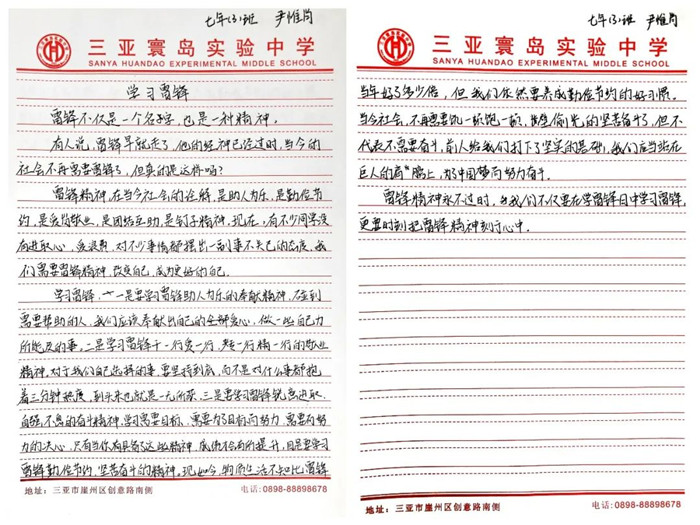 七年(3)班 尹惟尚
三亚寰岛实验中学
SANYA HUANDAO EXPERIMENTAL MIDDLE SCHOOL
学习雷锋
雷锋不仅是一个名字,也是一种精神。
有人说,雷锋早就死了,他的经神已经过时,当今的
社会不再需要雷锋了,但真的是这样吗?
雷锋精神,在当今社会的诠解,是助人为乐,是勤俭节
约,是爱岗敬业,是团结互助,是钉子精神。现在,有不少同学没
有进取心,爱浪费,对不少事情都摆出一副事不关己的态度,我
们需要雷锋精神,改变自己,成为更好的自己。
学习雷锋,一是要学习雷锋助人为乐的奉献精神,在受到
需要帮助的人,我们应该奉献出自己的全部爱心,做一些自己力
所能及的事。二是学习雷锋干一行爱一行,专一行精一行的敬业
精神,对于我们自己选择的事,要坚持到底,而不是对什么事都抱
着三分钟热度,到头来也就是一无所获。三是要学习雷锋锐意进取、
自强不息的奋斗精神,学习需要目标,需要为了目标而努力,需要为努
力的决心,只有当你有具备了这些精神,成绩才会有所提升,四是要学习
雷锋勤俭节约,坚苦奋斗的精神。现如今,物质生活不知比雷锋
地址:三亚市崖州区创意路南侧
电话:0898-88898678
七年(3)班 尹惟尚
三亚寰岛实验中学
SANYA HUANDAO EXPERIMENTAL MIDDLE SCHOOL
当年好了多少倍,但我们依然要养成勤俭节约的好习惯。
当今社会,不再需要饥一顿饱一顿,先的坚苦奋斗了,但不
代表不需要奋斗,前人给我们打下了坚实的基础,我们应当站在
巨人的肩膀上,为中国梦而努力奋斗。
雷锋精神永不过时,我们不仅要在学雷锋日中学习雷锋,
更要时刻把雷锋精神刻于心中。
地址:三亚市崖州区创意路南侧
电话:0898-88898678